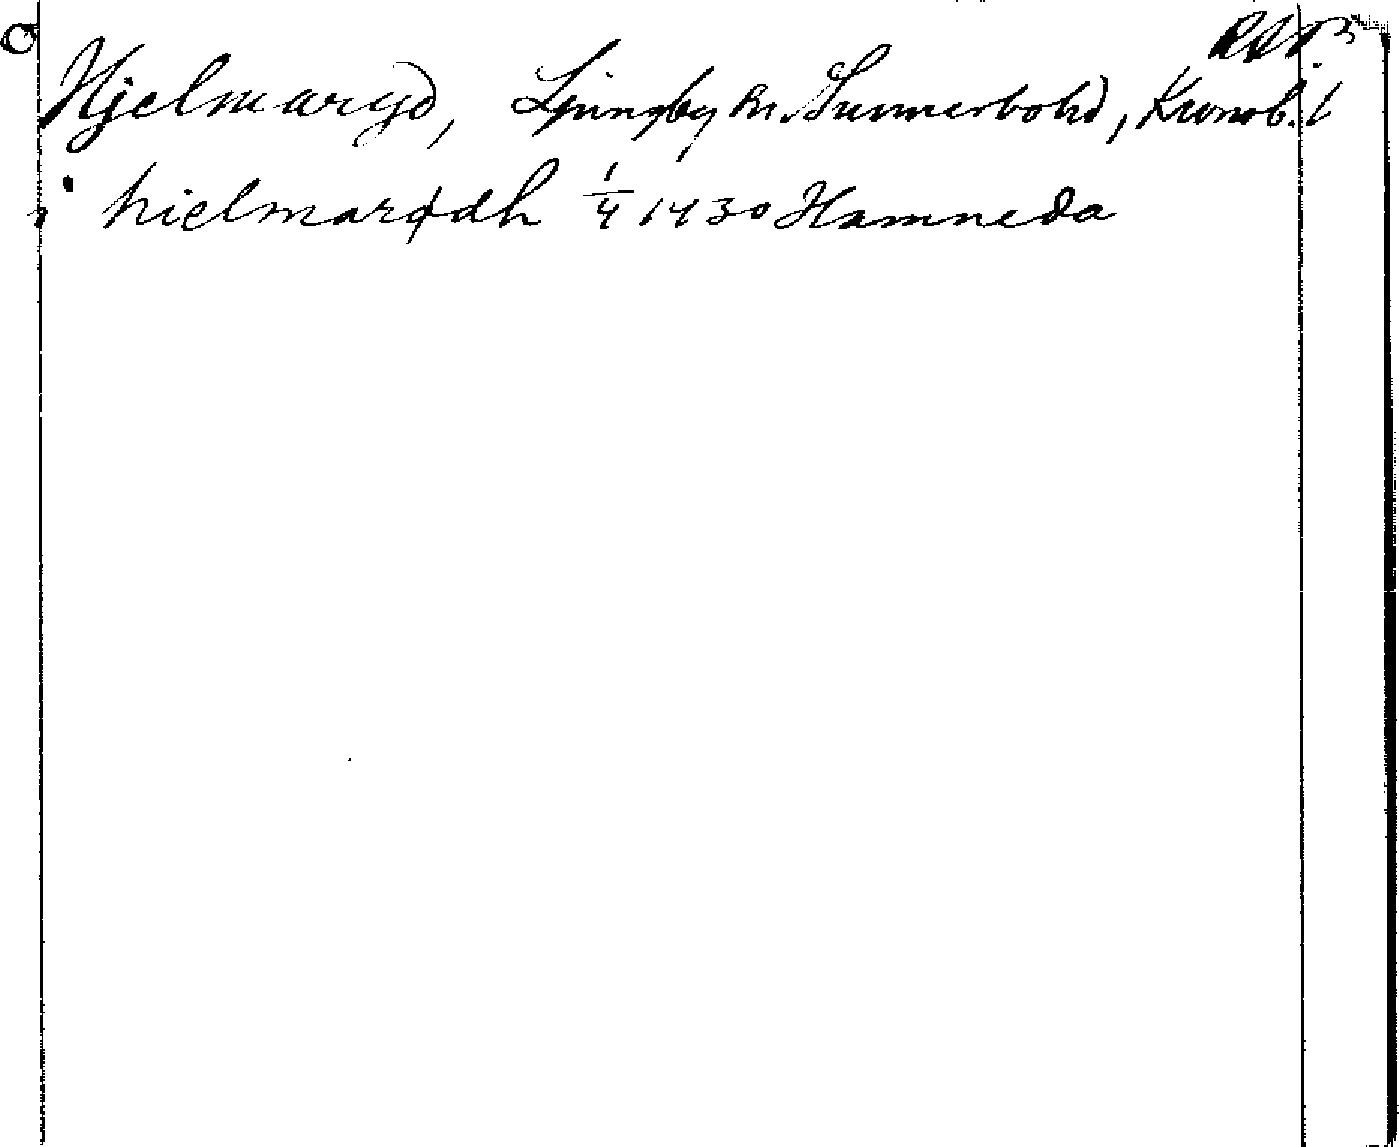 RAP
Hjelmaryd, Ljungby sn. Sunnerbohd, Kronob. l
i hielmarødh 1/4 1430 Hamneda